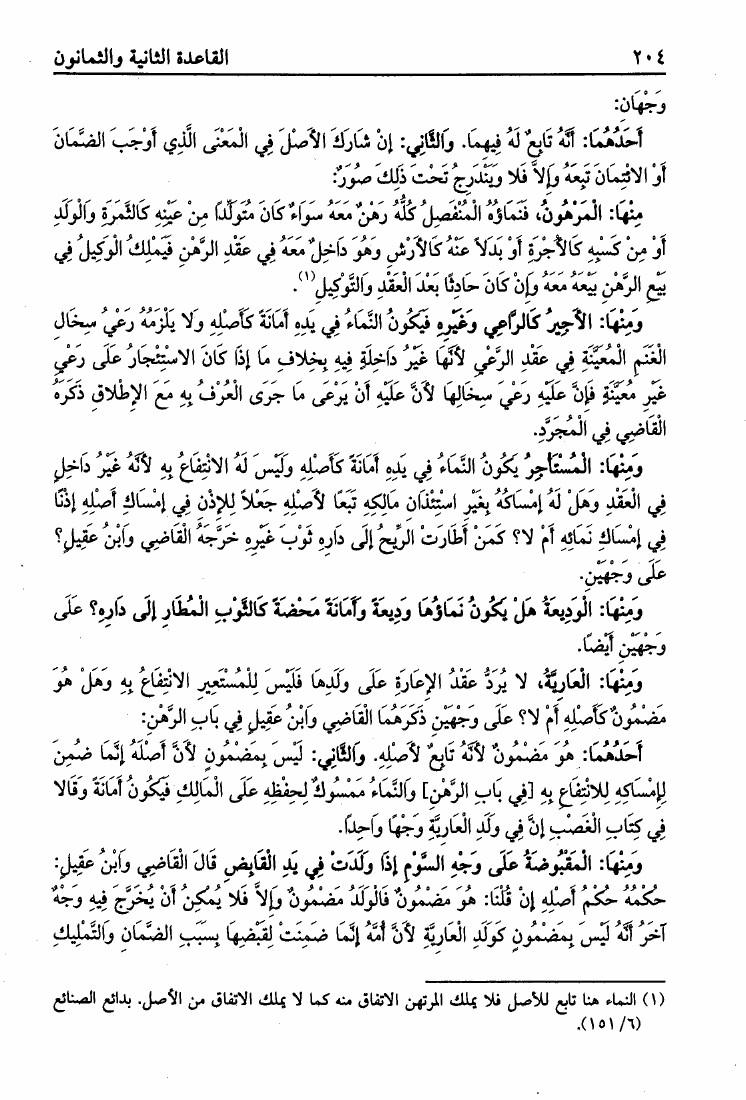 ٢٠٤ القاعدة الثانية والثمانون
وَجْهَان:
أَحَدُهُمَا: أَنَّهُ تَابِعٌ لَهُ فِيهِمَا. وَالثَّانِي: إِنْ شَارَكَ الأَصْلَ فِي الْمَعْنَى الَّذِي أَوْجَبَ الضَّمَانَ
أَوْ الائْتِمَانَ تَبِعَهُ وَإِلاَّ فَلا وَيَنْدَرِجُ تَحْتَ ذَلِكَ صُوَرٌ:
مِنْهَا: الْمَرْهُونُ، فَنَمَاؤُهُ الْمُنْفَصِلُ كُلُّهُ رَهْنٌ مَعَهُ سَوَاءٌ كَانَ مُتَوَلِّدًا مِنْ عَيْنِهِ كَالثَّمَرَةِ وَالْوَلَدِ
أَوْ مِنْ كَسْبِهِ كَالأُجْرَةِ أَوْ بَدَلاً عَنْهُ كَالأَرْشِ وَهُوَ دَاخِلٌ مَعَهُ فِي عَقْدِ الرَّهْنِ فَيَمْلِكُ الْوَكِيلُ فِي
بَيْعِ الرَّهْنِ بَيْعَهُ مَعَهُ وَإِنْ كَانَ حَادِثًا بَعْدَ الْعَقْدِ وَالتَّوْكِيلِ(١).
وَمِنْهَا: الأَجِيرُ كَالرَّاعِي وَغَيْرِهِ فَيَكُونُ النَّمَاءُ فِي يَدِهِ أَمَانَةً كَأَصْلِهِ وَلا يَلْزَمُهُ رَعْيُ سِخَالِ
الْغَنَمِ الْمُعَيَّنَةِ فِي عَقْدِ الرَّعْيِ لأَنَّهَا غَيْرُ دَاخِلَةٍ فِيهِ بِخِلافِ مَا إِذَا كَانَ الاسْتِئْجَارُ عَلَى رَعْيِ
غَيْرِ مُعَيَّنَةٍ فَإِنَّ عَلَيْهِ رَعْيَ سِخَالِهَا لأَنَّ عَلَيْهِ أَنْ يَرْعَى مَا جَرَى الْعُرْفُ بِهِ مَعَ الإِطْلاقِ ذَكَرَهُ
الْقَاضِي فِي الْمُجَرَّدِ.
وَمِنْهَا: الْمُسْتَأْجِرُ يَكُونُ النَّمَاءُ فِي يَدِهِ أَمَانَةً كَأَصْلِهِ وَلَيْسَ لَهُ الانْتِفَاعُ بِهِ لأَنَّهُ غَيْرُ دَاخِلٍ
فِي الْعَقْدِ وَهَلْ لَهُ إِمْسَاكُهُ بِغَيْرِ اسْتِئْذَانِ مَالِكِهِ تَبَعًا لأَصْلِهِ جَعْلاً لِلإِذْنِ فِي إِمْسَاكِ أَصْلِهِ إِذْنًا
فِي إِمْسَاكِ نَمَائِهِ أَمْ لا؟ كَمَنْ أَطَارَتْ الرِّيحُ إِلَى دَارِهِ ثَوْبَ غَيْرِهِ خَرَّجَهُ الْقَاضِي وَابْنُ عَقِيلٍ؟
عَلَى وَجْهَيْنِ.
وَمِنْهَا: الْوَدِيعَةُ هَلْ يَكُونُ نَمَاؤُهَا وَدِيعَةً وَأَمَانَةً مَحْضَةً كَالثَّوْبِ الْمُطَارِ إِلَى دَارِهِ؟ عَلَى
وَجْهَيْنِ أَيْضًا.
وَمِنْهَا: الْعَارِيَّةُ، لا يُرَدُّ عَقْدُ الإِعَارَةِ عَلَى وَلَدِهَا فَلَيْسَ لِلْمُسْتَعِيرِ الانْتِفَاعُ بِهِ وَهَلْ هُوَ
مَضْمُونٌ كَأَصْلِهِ أَمْ لا؟ عَلَى وَجْهَيْنِ ذَكَرَهُمَا الْقَاضِي وَابْنُ عَقِيلٍ فِي بَابِ الرَّهْنِ:
أَحَدُهُمَا: هُوَ مَضْمُونٌ لأَنَّهُ تَابِعٌ لأَصْلِهِ. وَالثَّانِي: لَيْسَ بِمَضْمُونٍ لأَنَّ أَصْلَهُ إِنَّمَا ضُمِنَ
لِإِمْسَاكِهِ لِلانْتِفَاعِ بِهِ [فِي بَابِ الرَّهْنِ] وَالنَّمَاءُ مَمْسُوكٌ لِحِفْظِهِ عَلَى الْمَالِكِ فَيَكُونُ أَمَانَةً وَقَالا
فِي كِتَابِ الْغَصْبِ إِنَّ فِي وَلَدِ الْعَارِيَّةِ وَجْهًا وَاحِدًا.
وَمِنْهَا: الْمَقْبُوضَةُ عَلَى وَجْهِ السَّوْمِ إِذَا وَلَدَتْ فِي يَدِ الْقَابِضِ قَالَ الْقَاضِي وَابْنُ عَقِيلٍ:
حُكْمُهُ حُكْمُ أَصْلِهِ إِنْ قُلْنَا: هُوَ مَضْمُونٌ فَالْوَلَدُ مَضْمُونٌ وَإِلاَّ فَلا يُمْكِنُ أَنْ يُخَرَّجَ فِيهِ وَجْهٌ
آخَرُ أَنَّهُ لَيْسَ بِمَضْمُونٍ كَوَلَدِ الْعَارِيَّةِ لأَنَّ أُمَّهُ إِنَّمَا ضَمِنَتْ لِقَبْضِهَا بِسَبَبِ الضَّمَانِ وَالتَّمْلِيكِ
(١) النماء هنا تابع للأصل فلا يملك المرتهن الاتفاق منه كما لا يملك الاتفاق من الأصل. بدائع الصنائع
(٦/ ١٥١).